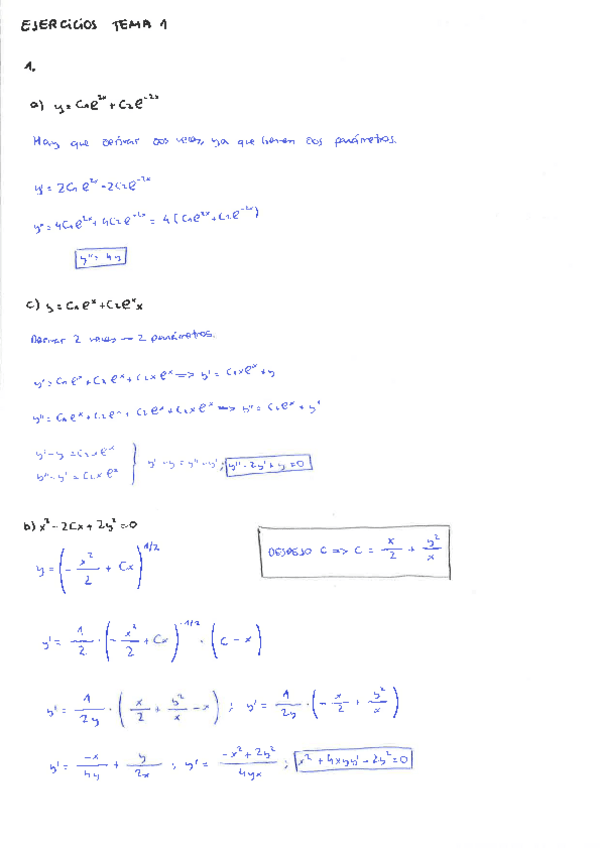 EJERCICIOS TEMA 1
1.
a) y = C₁e^{2x} + C₂e^{-2x}
Hay que derivar dos veces, ya que tienen dos parámetros.
y' = 2C₁e^{2x} - 2C₂e^{-2x}
y'' = 4C₁e^{2x} + 4C₂e^{-2x} = 4(C₁e^{2x} + C₂e^{-2x})
y'' = 4y
c) y = C₁e^x + C₂e^x x
Derivar 2 veces → 2 parámetros.
y' = C₁e^x + C₂e^x + C₂xe^x => y' = C₂xe^x + y
y'' = C₁e^x + C₂e^x + C₂e^x + C₂xe^x => y'' = C₂e^x + y'
y' - y = C₂xe^x
y'' - y' = C₂xe^x
} y' - y = y'' - y' ; y'' - 2y' + y = 0
b) x² - 2Cx + 2y² = 0
DESPEJO C => C = x/2 + y²/x
y = (-x²/2 + Cx)^{1/2}
y' = 1/2 · (-x²/2 + Cx)^{-1/2} · (C - x)
y' = 1/2y · (x/2 + y²/x - x) ; y' = 1/2y · (-x/2 + y²/x)
y' = -x/4y + y/2x ; y' = -x² + 2y²/4yx ; x² + 4xyy' - 2y² = 0